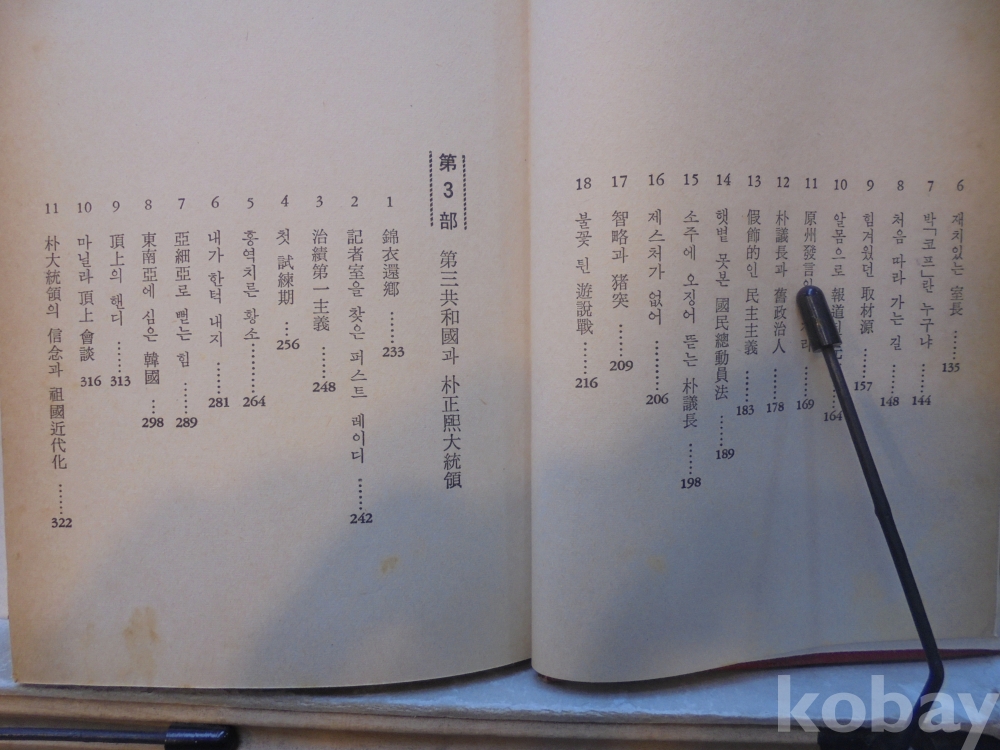 6 재치있는 室長 ……135
7 박「코프」란 누구냐 ……144
8 처음 따라 가는 길 ……148
9 힘겨웠던 取材源 ……157
10 알몸으로 報道 ……164
11 原州發言 ……169
12 朴議長과 舊政治人 ……178
13 假飾的인 民主主義 ……183
14 햇볕 못본 國民總動員法 ……189
15 소주에 오징어 뜯는 朴議長 ……198
16 제스처가 없어 ……206
17 智略과 猪突 ……209
18 불꽃 튄 遊說戰 ……216
第3部 第三共和國과 朴正熙大統領
1 錦衣還鄕 ……233
2 記者室을 찾은 퍼스트 레이디 ……242
3 治績第一主義 ……248
4 첫 試練期 ……256
5 홍역치른 황소 ……264
6 내가 한턱 내지 ……281
7 亞細亞로 뻗는 힘 ……289
8 東南亞에 심은 韓國 …298
9 頂上의 핸디 ……313
10 마닐라 頂上 會談 316
11 朴大統領의 信念과 祖國近代化 ……322
kobay